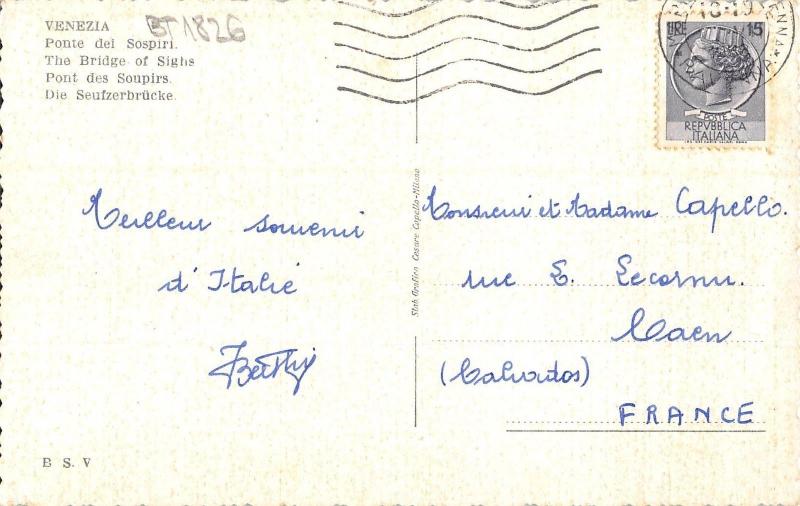 VENEZIA
Ponte dei Sospiri.
The Bridge of Sighs
Pont des Soupirs.
Die Seufzerbrücke.
BT1826
18-19
LIRE 15
POSTE
REPVBBLICA
ITALIANA
Meilleur souvenir
d'Italie
Stab Grafico Cesare Capello-Milano
Monsieur et Madame Capello.
rue E. Lecornu.
Caen
(Calvados)
FRANCE
B S. V